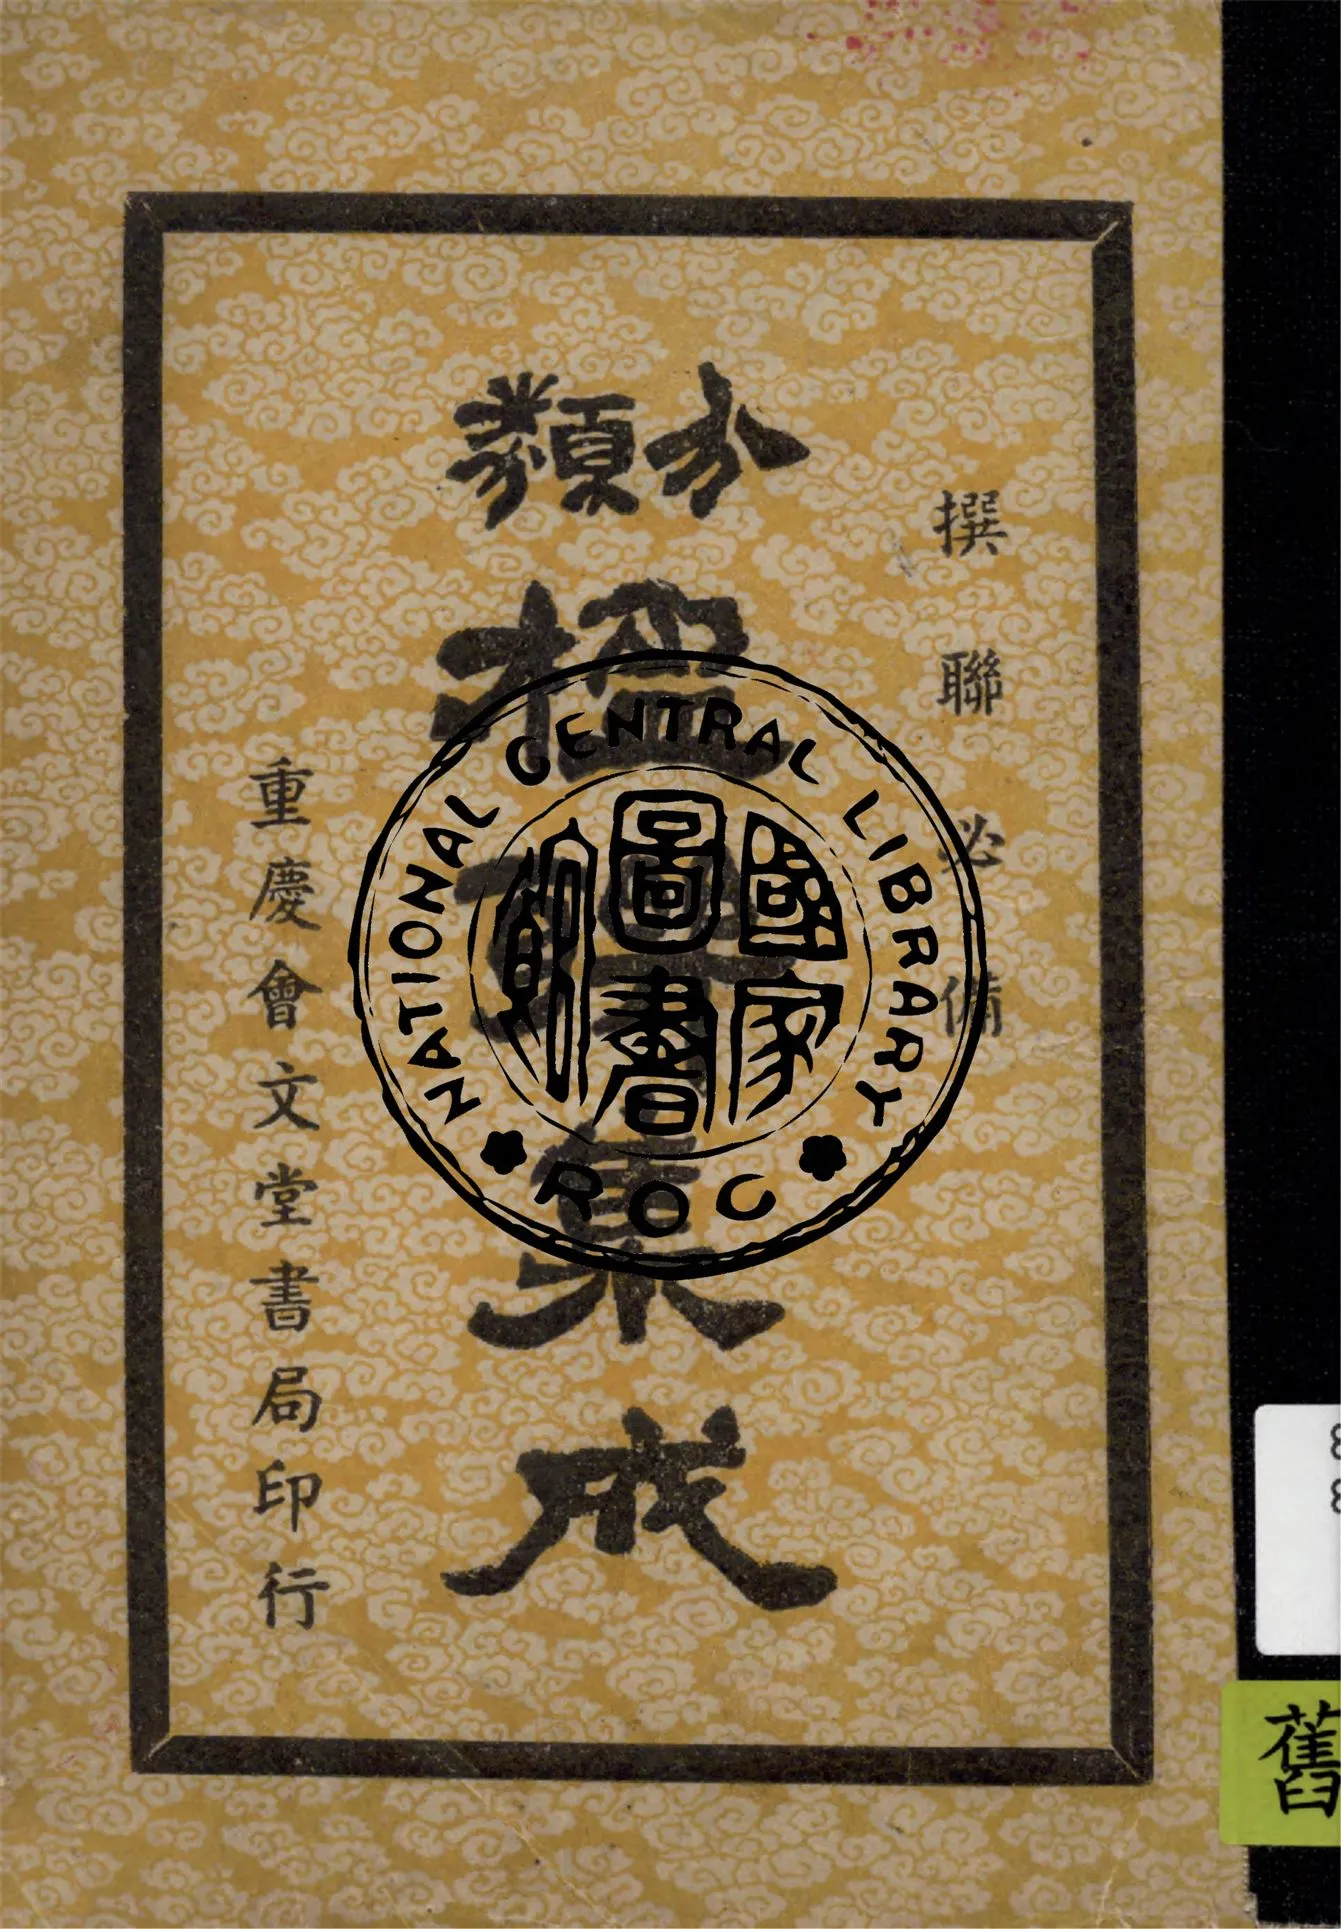 撰聯必備
分類
楹聯集成
重慶會文堂書局印行
NATIONAL CENTRAL LIBRARY
國家
圖書
館
ROC
舊